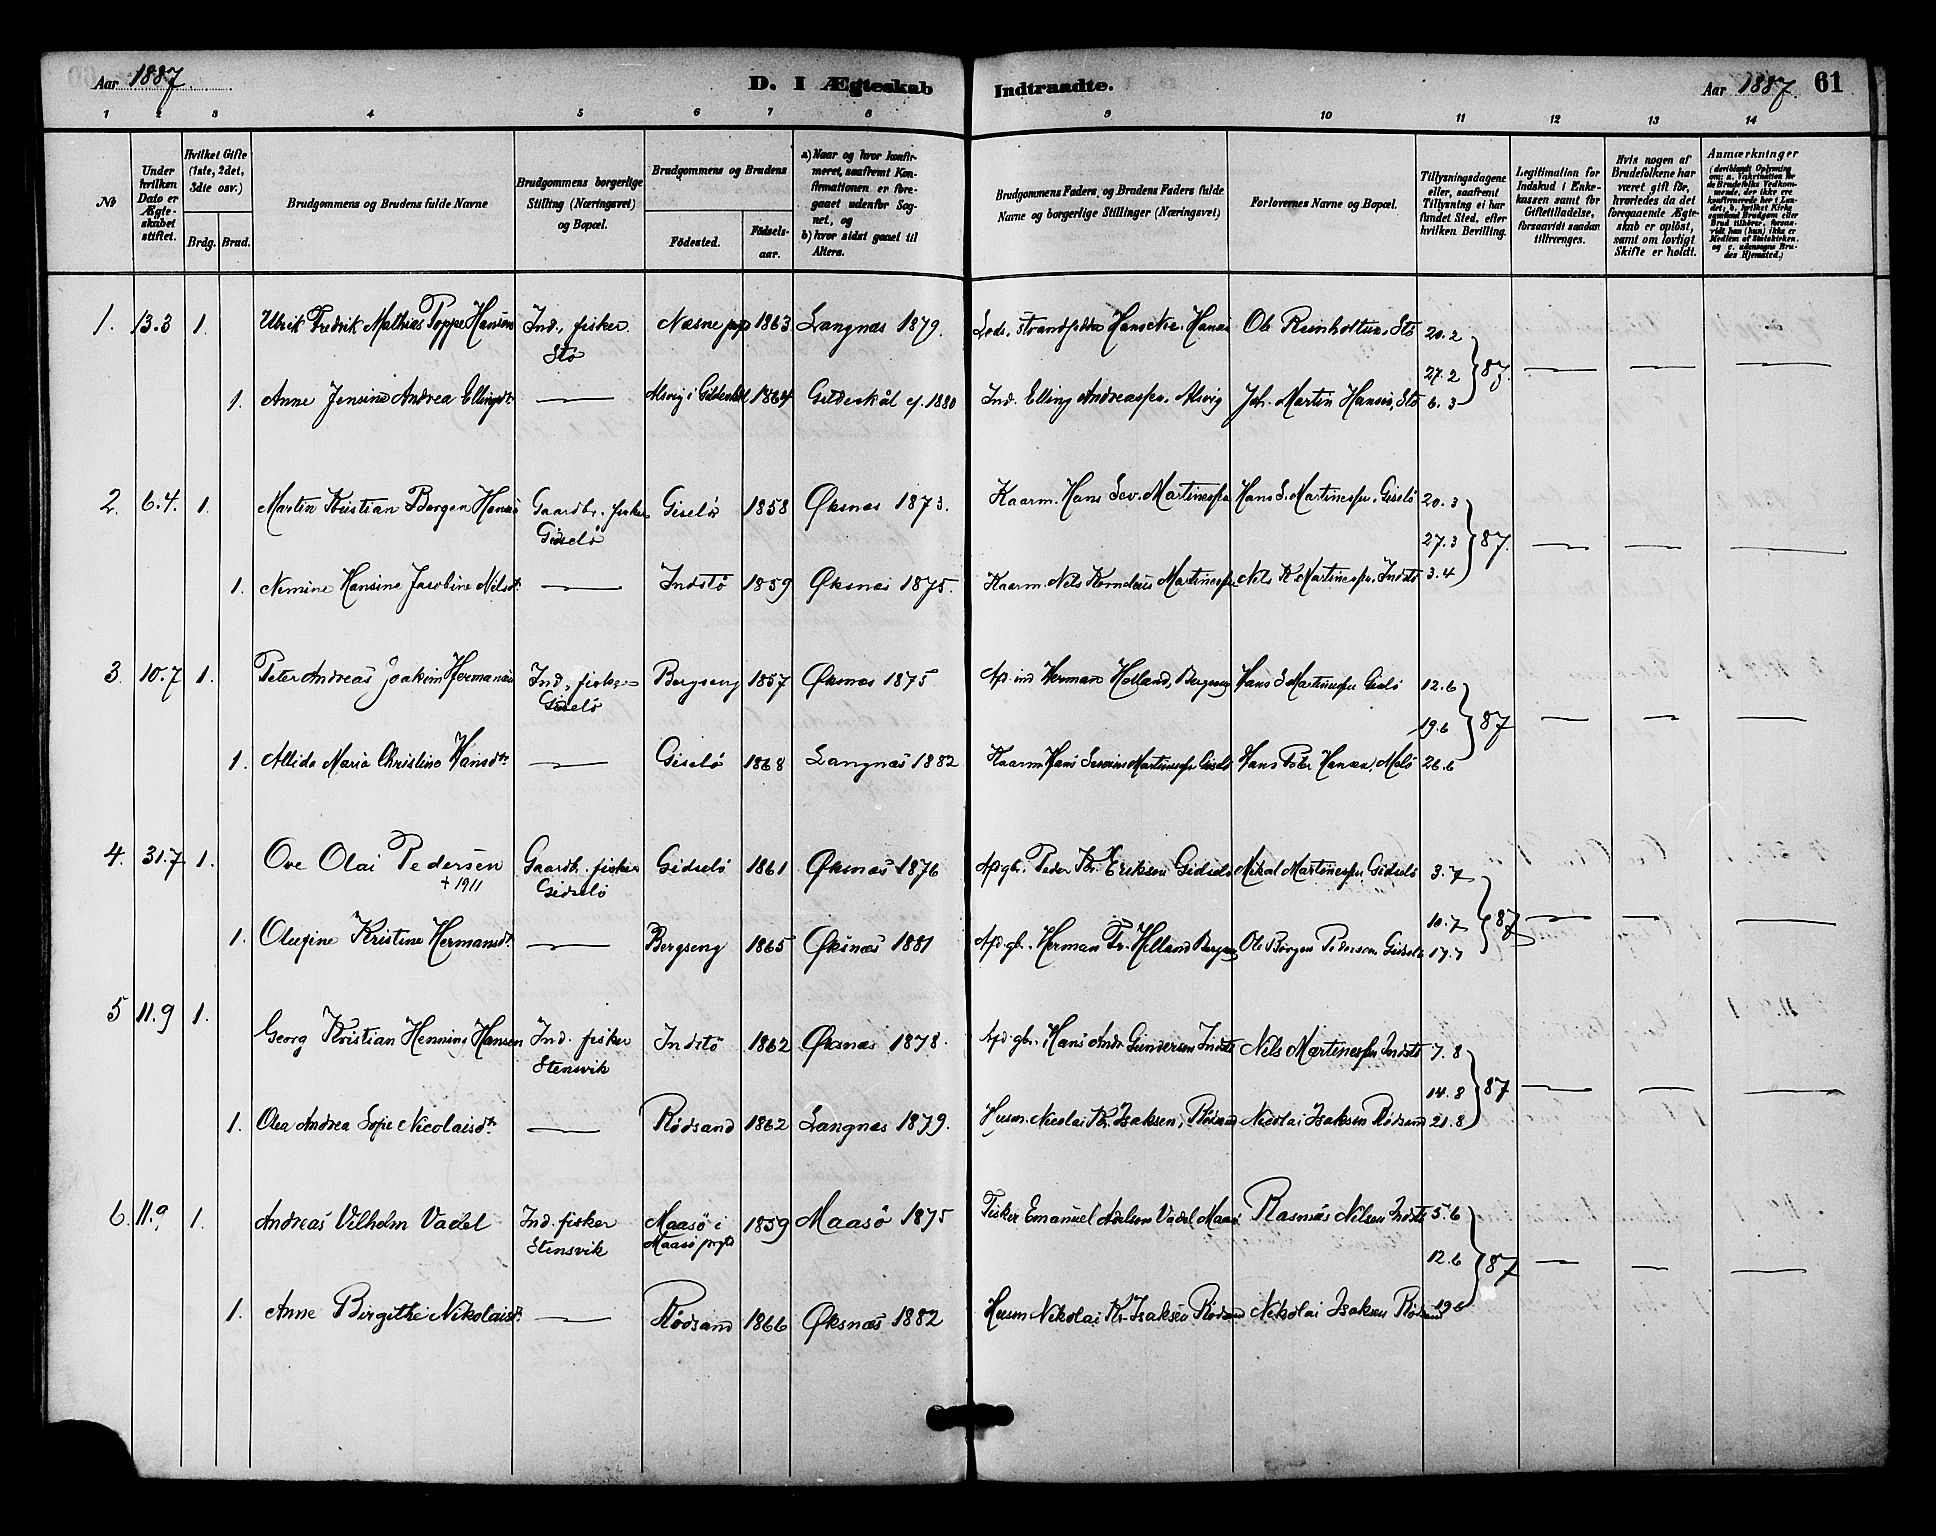 Aar 1887. D. I Ægteskab Indtraadte. Aar 1887. 61
1 2 3 4 5 6 7 8 9 10 11 12 13 14
No
Under hvilken Dato er Ægteskabet stiftet.
Hvilket Gifte (1ste, 2det, 3die osv.)
Brdg. Brud.
Brudgommens og Brudens fulde Navne
Brudgommens borgerlige Stilling (Næringsvei) og Bopæl.
Brudgommens og Brudens
Fødested. Fødselsaar.
a) Naar og hvor konfirmeret, saafremt Konfirmationen er foregaaet udenfor Sognet, og
b) hvor sidst gaaet til Alters.
Brudgommens Faders, og Brudens Faders fulde Navne og borgerlige Stillinger (Næringsvei)
Forlovernes Navne og Bopæl.
Tillysningsdagene eller, saafremt Tillysning ei har fundet Sted, efter hvilken Bevilling.
Legitimation for Indskud i Enkekassen samt for Giftetilladelse, forsaavidt saadan tiltrænges.
Hvis nogen af Brudefolkene har været gift før, hvorledes da det foregaaende Ægteskab er opløst, samt om lovligt Skifte er holdt.
Anmærkninger
1. 13.3 1. Ulrik Fredrik Mathias Poppe Hansen Ind., fisker. 1863 Langnæs 1879. Ole Reinholtsen, Stø 20.2
Stø
27.2 } 87.
1. Anne Jensine Andrea Ellingsdt. — Alsvig i Gildeskål 1864 Gildeskål 1880 Ind. Elling Andreassen, Alsvig Joh. Martin Hansen, Stø 6.3
2. 6.4. 1. Martin Kristian Borgen Hansen Gaardbr. fisker Giselø 1858 Øksnes 1873. Kaarm. Hans Sev. Martinessen Hans S. Martinessen, Giselø 20.3
Gidselø
27.3 } 87.
1. Nemine Hansine Jacobine Nilsdt. — Indstø 1859 Øksnes 1875. Kaarm. Nels Martinessen Nels K. Martinessen, Indstø 3.4
3. 10.7 1. Peter Andreas Joakim Hermansen Ind., fisker Bergseng 1857 Øksnes 1875 Herman Holland, Bergseng Hans S Martinessen Giselø 12.6
Gidselø
19.6 } 87
1. Allida Maria Christine Hansdtr — Giselø 1868 Langnæs 1882 Kaarm Hans Severin Martinessen Giselø Hans Peter Hansen, Melø 26.6
4. 31.7 1. Ove Olai Pedersen Gaardb. fisker Gidselø 1861 Øksnæs 1876 Peder Kr. Eriksen Gidselø Mikal Martinessen Gidselø 3.7
† 1911 Gidselø
10.7 } 87
1. Olufine Kristine Hermansdt. — Bergseng 1865 Øksnæs 1881 Herman Fr. Holland Bergseng Ole Borgen Pedersen Giselø 17.7
5 11.9 1. Georg Kristian Henning Hansen Ind. fisker Indstø 1862 Øksnæs 1878. Hans Andr Gundersen Indstø Nils Martinessen Indstø 7.8
Stensvik
14.8 } 87
1. Olea Andrea Sofie Nicolaisdt. — Rødsand 1862 Langnæs 1879. Husm. Nicolai Kr. Isaksen, Rødsand Nicolai Isaksen Rødsand 21.8
6. 11.9 1. Andreas Vilhelm Vadel Ind. fisker Maasø i 1859 Maasø 1875 Fisker Emanuel Adelsen Vadel Maasø Rasmus Nilsen Indstø 5.6
Stensvik Maasø prgld
12.6 } 87
1. Anne Birgithe Nikolaisdt. — Rødsand 1866 Øksnæs 1882 Husm Nikolai Kr. Isaksen Rødsand Nikolai Isaksen Rødsand 19.6